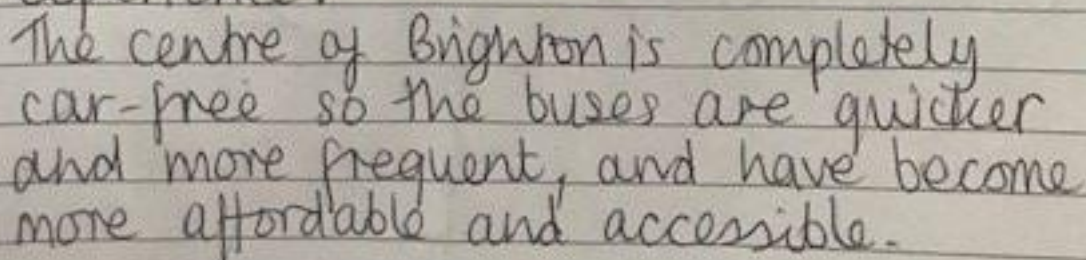 The centre of Brighton is completely
car-free so the buses are quicker
and more frequent, and have become
more affordable and accessible.